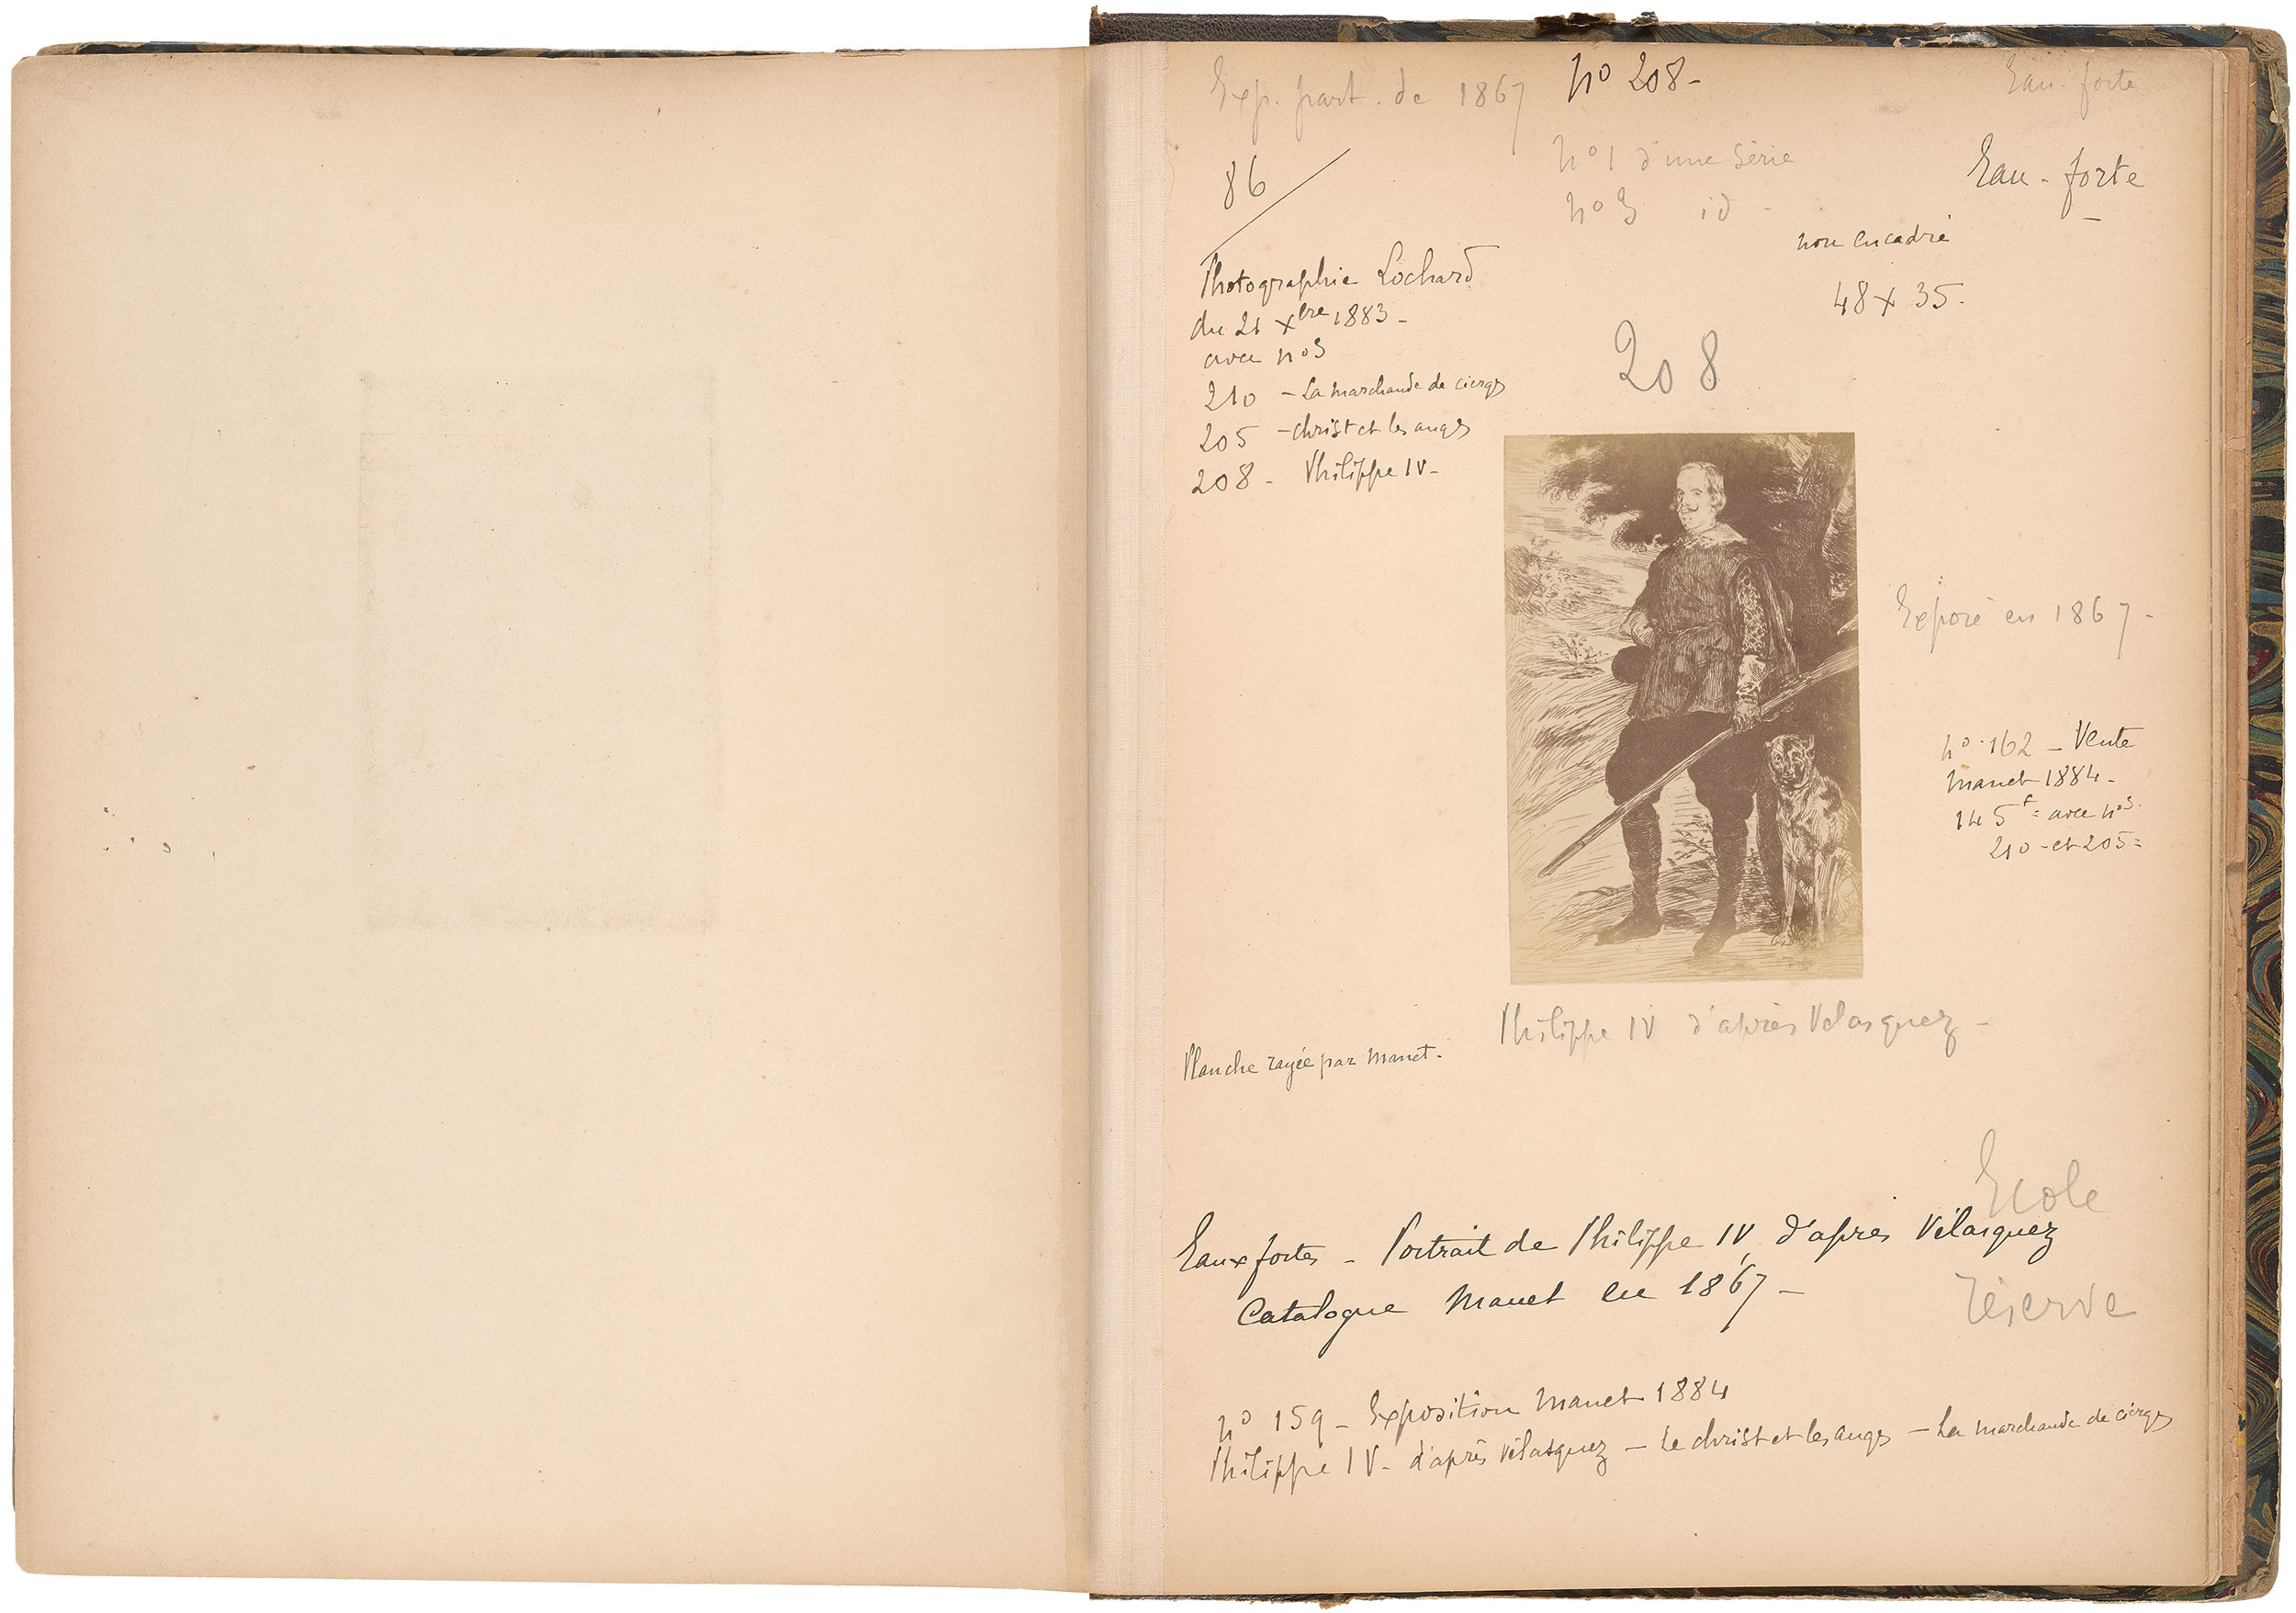 Exp. part. de 1867
n° 208 -
Eau-forte
86
n° 1 d'une Série
n° 3 id -
Eau-forte
non encadré
48 x 35.
Photographie Lochard
du 21 Xbre 1883 -
avec nos
210 - La marchande de cierges
205 - christ et les anges
208 - Philippe IV -
208
Exposé en 1867 -
n° 162 - Vente
Manet 1884 -
145 f = avec nos
210 - et 205 =
Philippe IV d'après Velasquez -
Planche rayée par Manet.
Ecole
Eaux fortes - Portrait de Philippe IV, d'après Vélasquez
Catalogue Manet en 1867 -
réserve
n° 159 - Exposition Manet 1884
Philippe IV - d'après Vélasquez - Le christ et les anges - La marchande de cierges